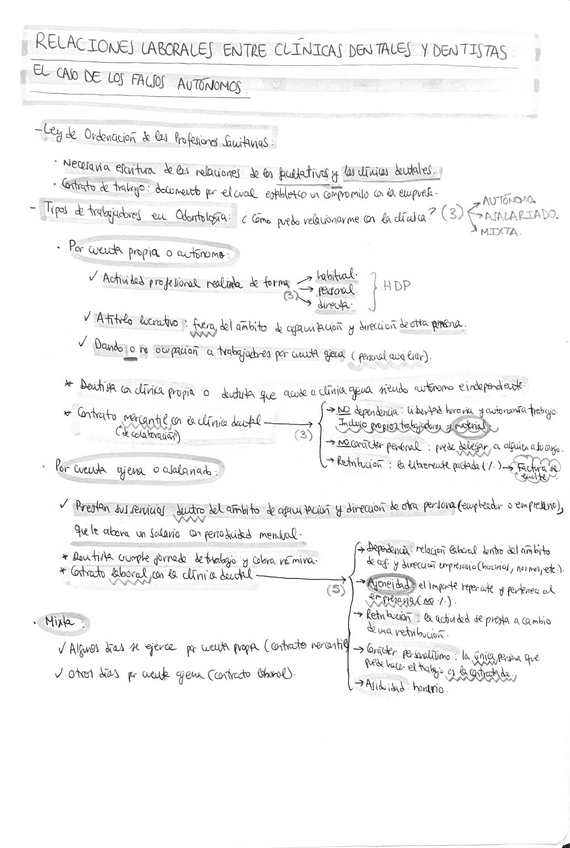 RELACIONES LABORALES ENTRE CLÍNICAS DENTALES Y DENTISTAS
EL CASO DE LOS FALSOS AUTÓNOMOS.
- Ley de Ordenación de las Profesiones Sanitarias:
· Necesaria escritura de las relaciones de los facultativos y las clínicas dentales.
· Contrato de trabajo: documento por el cual establezco un compromiso con la empresa.
- Tipos de trabajadores en Odontología: ¿Cómo puedo relacionarme con la clínica? (3)
→ AUTÓNOMA.
→ ASALARIADO.
→ MIXTA.
· Por cuenta propia o autónomo:
✓ Actividad profesional realizada de forma (3)
→ habitual.
→ personal
→ directa.
} HDP
✓ A título lucrativo: fuera del ámbito de organización y dirección de otra persona.
✓ Dando o no ocupación a trabajadores por cuenta ajena (personal auxiliar).
* Dentista con clínica propia o dentista que acude a clínica ajena siendo autónomo e independiente.
* Contrato mercantil con la clínica dental
(de colaboración)
(3)
→ NO dependencia: libertad horaria y autonomía trabajo.
Incluye propios trabajadores y material.
→ NO carácter personal: puede delegar a alguien a tu cargo.
→ Retribución: la libremente pactada (%) → Factura se emite
· Por cuenta ajena o asalariado:
✓ Prestan sus servicios dentro del ámbito de organización y dirección de otra persona (empleador o empresario),
que le abona un salario con periodicidad mensual.
* Dentista cumple jornada de trabajo y cobra nómina.
* Contrato laboral con la clínica dental
(5)
→ Dependencia: relación laboral dentro del ámbito
de org y dirección empresario (horarios, normas, etc.).
→ Ajeneidad: el importe repercute y pertenece al
empresario (NO %).
→ Retribución: la actividad se presta a cambio
de una retribución.
→ Carácter personalísimo: la única persona que
puede hacer el trabajo es la contratada.
→ Asiduidad horario.
· Mixta:
✓ Algunos días se ejerce por cuenta propia (contrato mercantil)
✓ Otros días por cuenta ajena (contrato laboral).